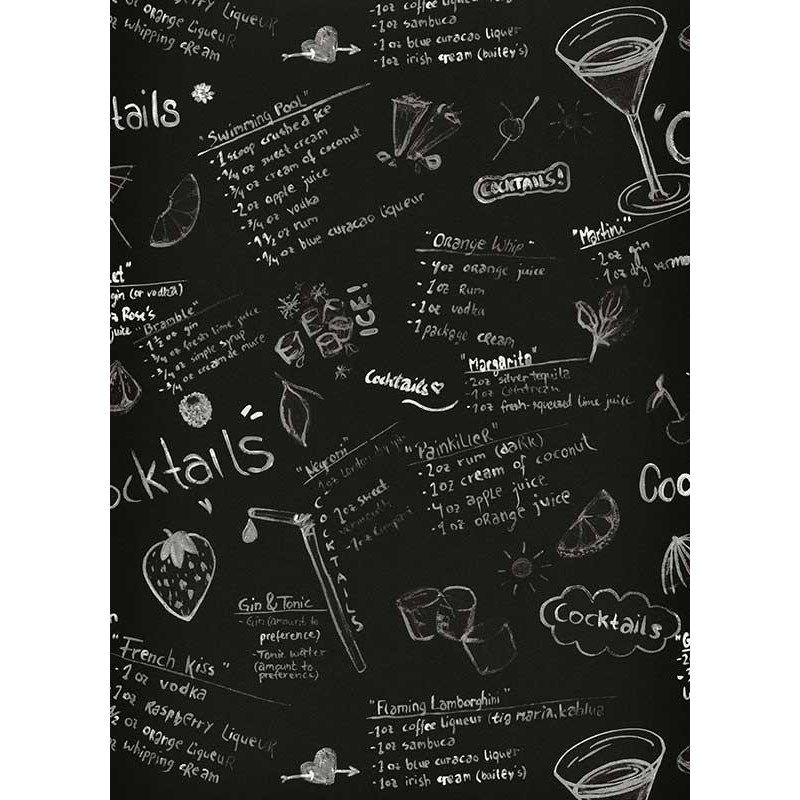 oz orange liqueur
oz whipping cream
-1oz coffee liqueur
-1oz sambuca
-1oz blue curacao liquer
-1oz irish cream (bailey's)
tails
"Swimming Pool"
-1 scoop crushed ice
-3/4 oz sweet cream
-3/4 oz cream of coconut
-2oz apple juice
-3/4 oz vodka
-1 1/2 oz rum
-1/4 oz blue curacao liqueur
COCKTAILS!
"Orange Whip"
-4oz orange juice
-1oz Rum
-1oz vodka
-1 package cream
"Martini"
-2oz gin
-1oz dry vermo
et"
gin (or vodka)
a Rose's
juice
"Bramble"
-1 1/2 oz gin
-3/4 oz fresh lime juice
-3/4 oz simple syrup
-3/4 oz creme de mure
ICE!
Cocktails
"Margarita"
-2oz silver tequila
-1oz Cointreau
-1oz fresh-squeezed lime juice
ocktails
"Negroni"
-1oz London dry gin
-1oz sweet
vermouth
-1oz Campari
COCKTAILS
"Painkiller"
-2oz rum (dark)
-1oz cream of coconut
-4oz apple juice
-1oz orange juice
Coc
Gin & Tonic
-Gin (amount to
preference)
-Tonic water
(amount to
preference)
Cocktails
"French Kiss"
-1oz vodka
-1oz Raspberry Liqueur
1/2 oz orange liqueur
oz whipping cream
"Flaming Lamborghini"
-1oz coffee liqueur (tia maria, kahlua
-1oz sambuca
-1oz blue curacao liquer
-1oz irish cream (bailey's)